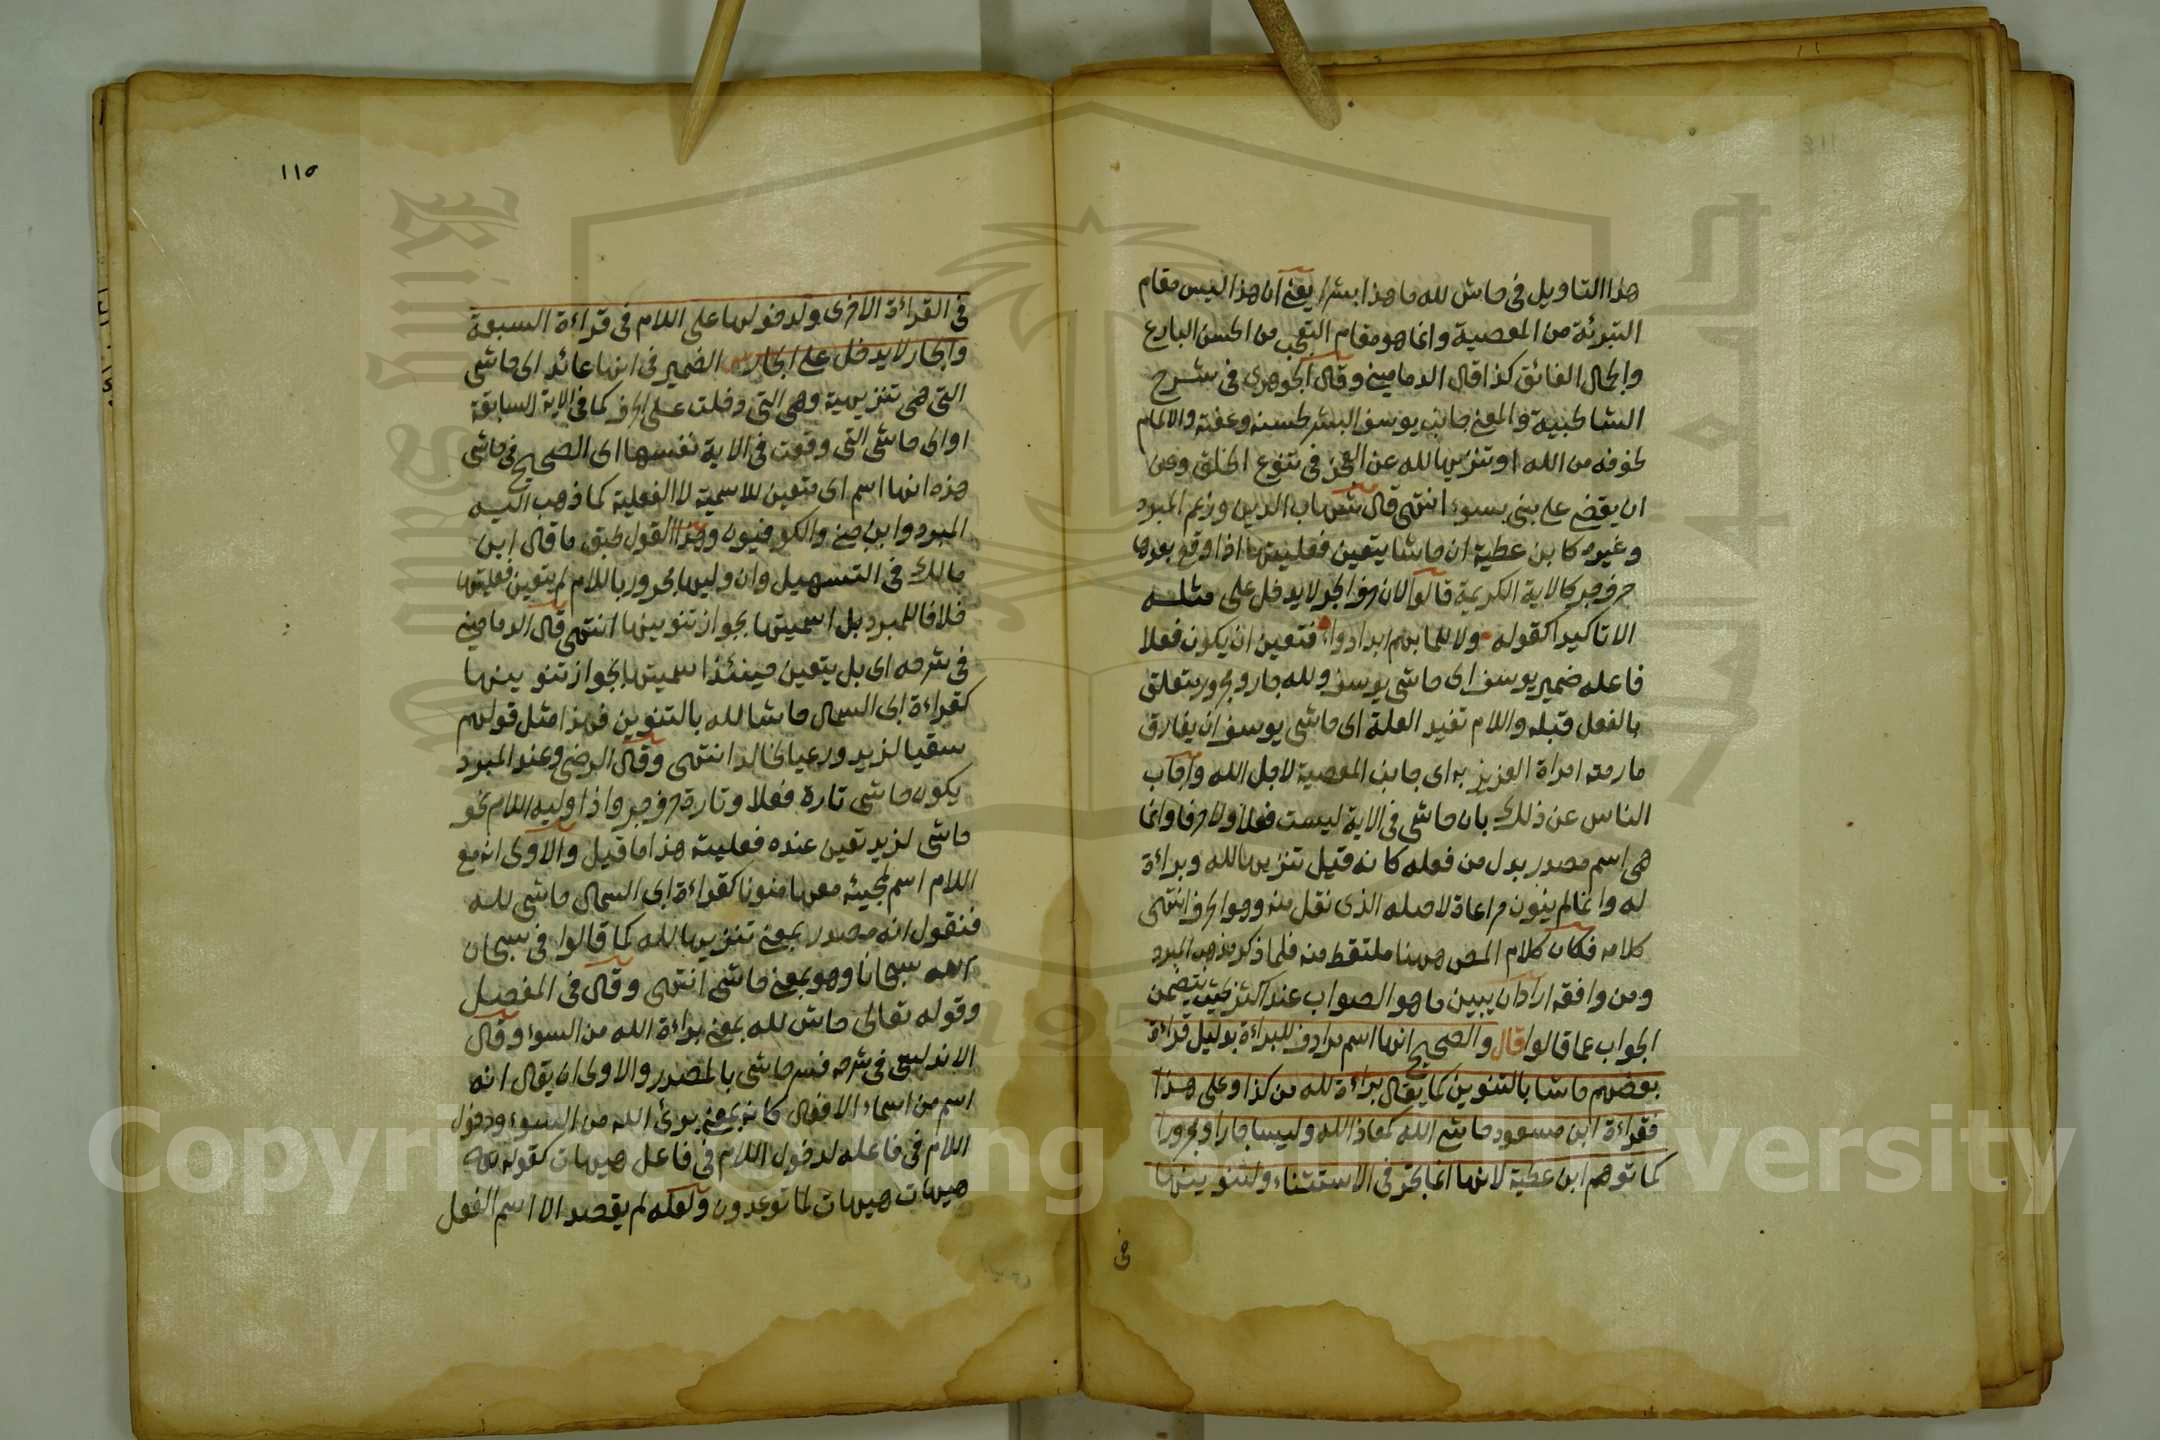 هذا التاويل في حاش لله ما هذا بشرا يعني ان هذا ليس مقام
التبرئة من المعصية وانما هو مقام التعجب من الحسن البارع
والجمال الفائق كذا قال الدماميني وقال الجوهري في شرح
الشاطبية والمعنى جانب يوسف البشر لحسنه وعفته والالمام
لخوفه من الله او تنزيها لله عن العجز في تنوع الخلق وعن
ان يقضي على بني بسوء انتهى قال شهاب الدين وزعم المبرد
وغيره كابن عطية ان حاشا يتعين فعليتها اذا وقع بعدها
حرف جر كالاية الكريمة قالوا لان حرف الجر لا يدخل على مثله
الا تاكيدا كقوله ولا للما بهم ابدا دواء فتعين ان يكون فعلا
فاعله ضمير يوسف اى حاشى يوسف ولله جار ومجرور يتعلق
بالفعل قبله واللام تفيد العلة اى حاشى يوسف ان يقارف
ما رمته امراة العزيز به اى جانب المعصية لاجل الله واجاب
الناس عن ذلك بان حاشى في الاية ليست فعلا ولا حرفا وانما
هى اسم مصدر بدل من فعله كانه قيل تنزيها لله وبراءة
له وانما لم ينون مراعاة لاصله الذى نقل منه وهو الحرف انتهى
كلامه فكان كلام المص ههنا ملتقط منه فلما ذكر مذهب المبرد
ومن وافقه اراد ان يبين ما هو الصواب عند اكثر بحيث يتضمن
الجواب عما قالوا قال والصحيح انها اسم مرادف للبراءة بدليل قراءة
بعضهم حاشا بالتنوين كما يقال براءة لله من كذا وعلى هذا
فقراءة ابن مسعود حاشى الله كمعاذ الله وليسا جارا ومجرورا
كما توهم ابن عطية لانها انما تجر في الاستثناء ولتنوينها
في
١١٥
في القراءة الاخرى ولدخولها على اللام في قراءة السبعة
والجار لا يدخل على الجار الضمير في انها عائد الى حاشى
التي هي تنزيهية وهي التي دخلت على الحرف كما في الاية السابقة
او الى حاشى التي وقعت في الاية نفسها اى الصحيح في حاشى
هذه انها اسم اى متعين للاسمية لا الفعلية كما ذهب اليه
المبرد وابن جني والكوفيون وهذا القول طبق ما قال ابن
مالك في التسهيل وان وليها مجرور باللام لم يتعين فعليتها
خلافا للمبرد بل اسميتها بجواز تنوينها انتهى قال الدماميني
في شرحه اى بل يتعين حينئذ اسميتها بجواز تنوينها
كقراءة ابى السمال حاشا لله بالتنوين فهذا مثل قولهم
سقيا لزيد ورعيا لخالد انتهى وقال الرضي وعند المبرد
يكون حاشى تارة فعلا وتارة حرف جر واذا وليه اللام نحو
حاشى لزيد تعين عنده فعليته هذا ما قيل والاولى انه مع
اللام اسم لمجيئه معها منونا كقراءة ابى السمال حاشى لله
فنقول انه مصدر بمعنى تنزيها لله كما قالوا في سبحان
الله سبحانا وهو بمعنى حاشى انتهى وقال في المفصل
وقوله تعالى حاش لله بمعنى براءة الله من السوء وقال
الاندلسي في شرحه فسر حاشى بالمصدر والاولى ان يقال انه
اسم من اسماء الافعال كانه بمعنى برئ الله من السوء ودخول
اللام في فاعله لدخول اللام في فاعل هيهات كقوله تعالى
هيهات هيهات لما توعدون ولعله لم يقصد الا اسم الفعل
Copyright © King Saud University